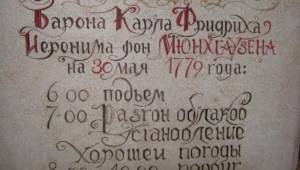 Барона Карла Фридриха
Иеронима фон Мюнхгаузена
на 30 мая 1779 года:
6 00 подъем
7 00 Разгон облаков
Установление
Хорошей погоды